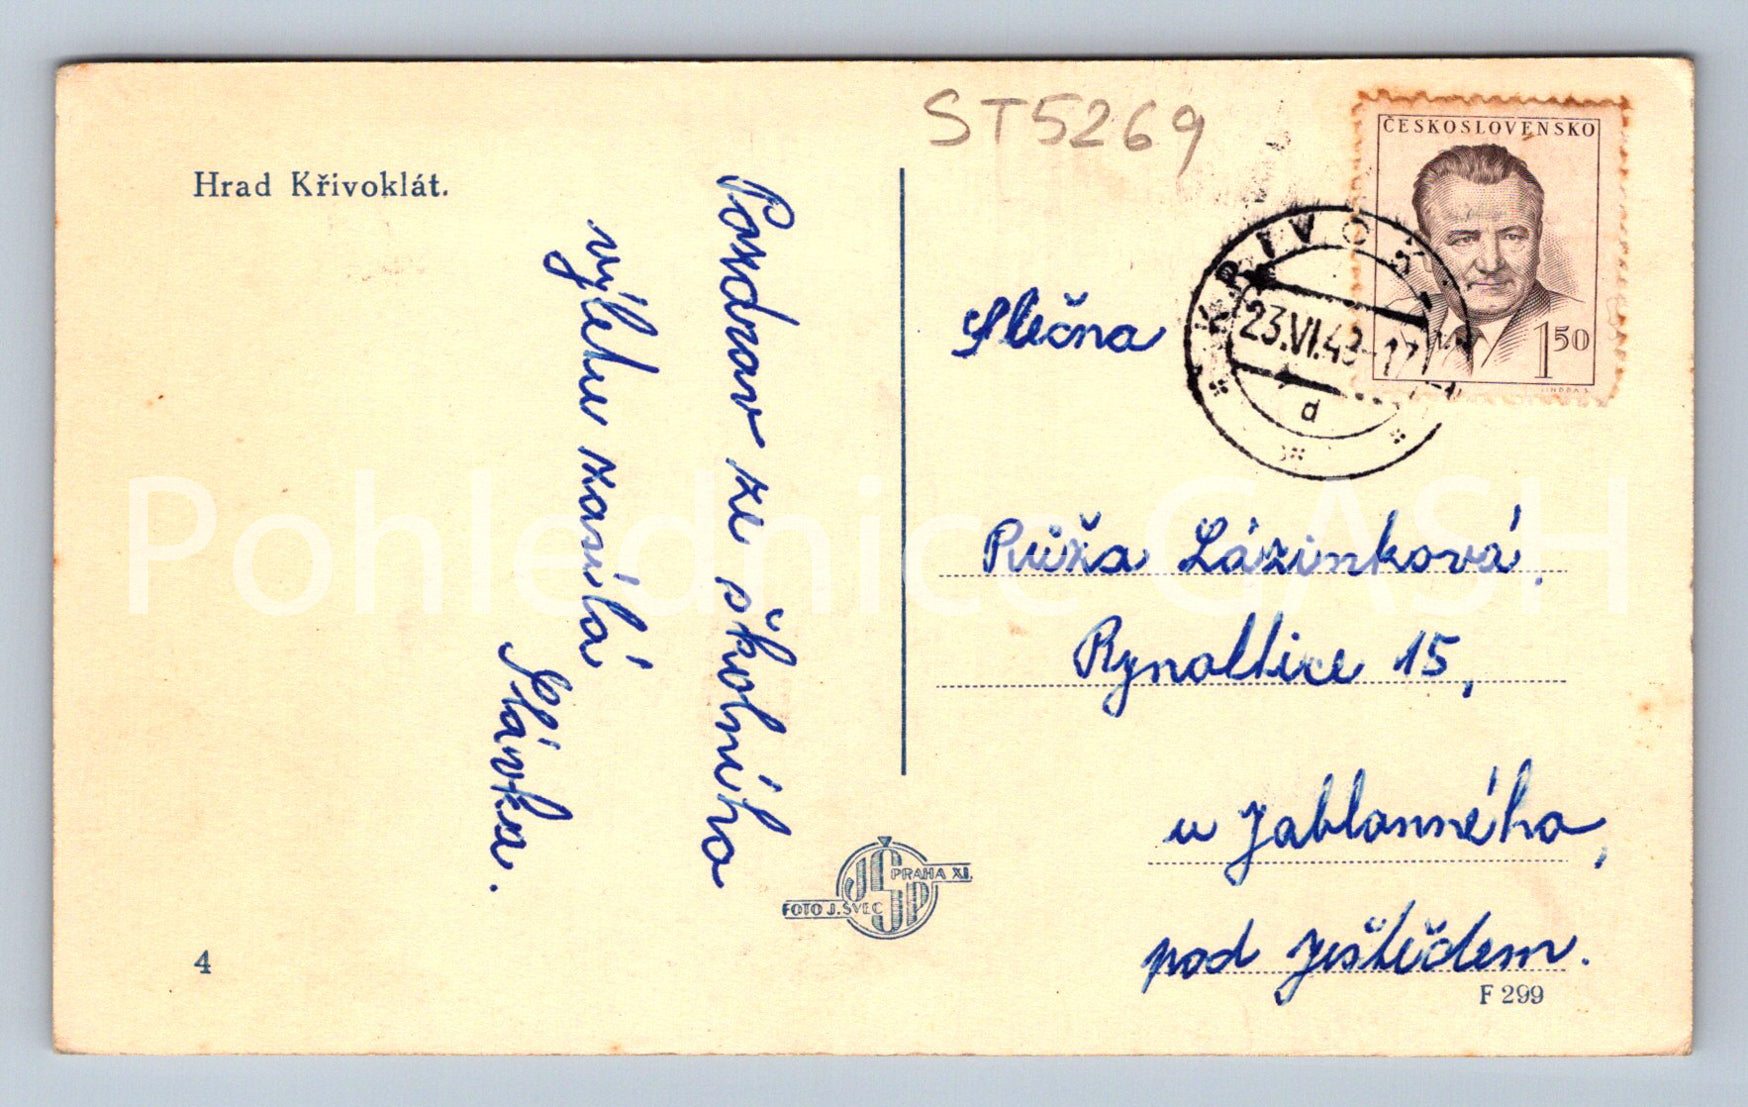 ST5269
ČESKOSLOVENSKO
1 50
Hrad Křivoklát.
23.VI.49-17
d
Pozdrav ze školního
výletu zasílá
Slávka.
Slečna
Růža Lázinková,
Rynoltice 15,
u Jablonného,
pod Ještědem.
PRAHA XI.
FOTO J. ŠVEC
4
F 299
Pohlednice GASH